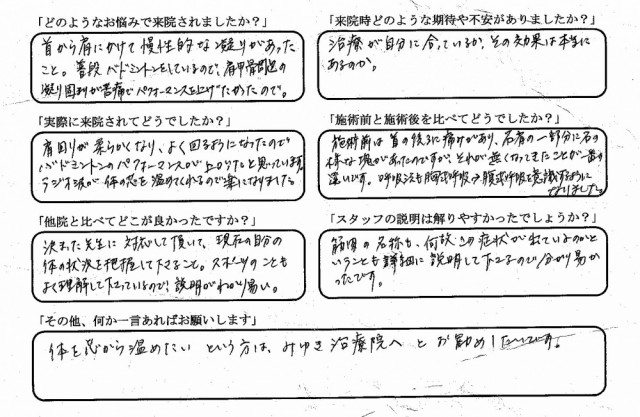 「どのようなお悩みで来院されましたか？」
首から肩にかけて慢性的な凝りがあった
こと。普段バドミントンをしているので、肩甲骨周辺の
凝り固まりが苦痛でパフォーマンスを上げたかたので。
「来院時どのような期待や不安がありましたか？」
治療が自分に合っているか、その効果は本当に
あるのか。
「実際に来院されてどうでしたか？」
肩回りが柔らかくなり、よく回るようになったので
バドミントンのパフォーマンスが上がったと思っています。
ラジオ波が体の芯を温めてくれるので楽になりました。
「施術前と施術後を比べてどうでしたか？」
施術前は首の後ろに痛けがあり、右肩の一部分に石の
様な塊があったのですが、それが無くなってきたことが一番の
違いです。呼吸法も胸式呼吸→腹式呼吸を意識するように
なりました。
「他院と比べてどこが良かったですか？」
決まった先生に対応して頂いて、現在の自分の
体の状況を把握して下さること。スポーツのことも
よく理解して下さっているので、説明がわかり易い。
「スタッフの説明は解りやすかったでしょうか？」
筋肉の名称も、何故この症状が出ているのかと
いうことも詳細に説明して下さるので分かり易か
ったです。
「その他、何か一言あればお願いします」
体を芯から温めたいという方は、みゆき治療院へとお勧めしたいです。